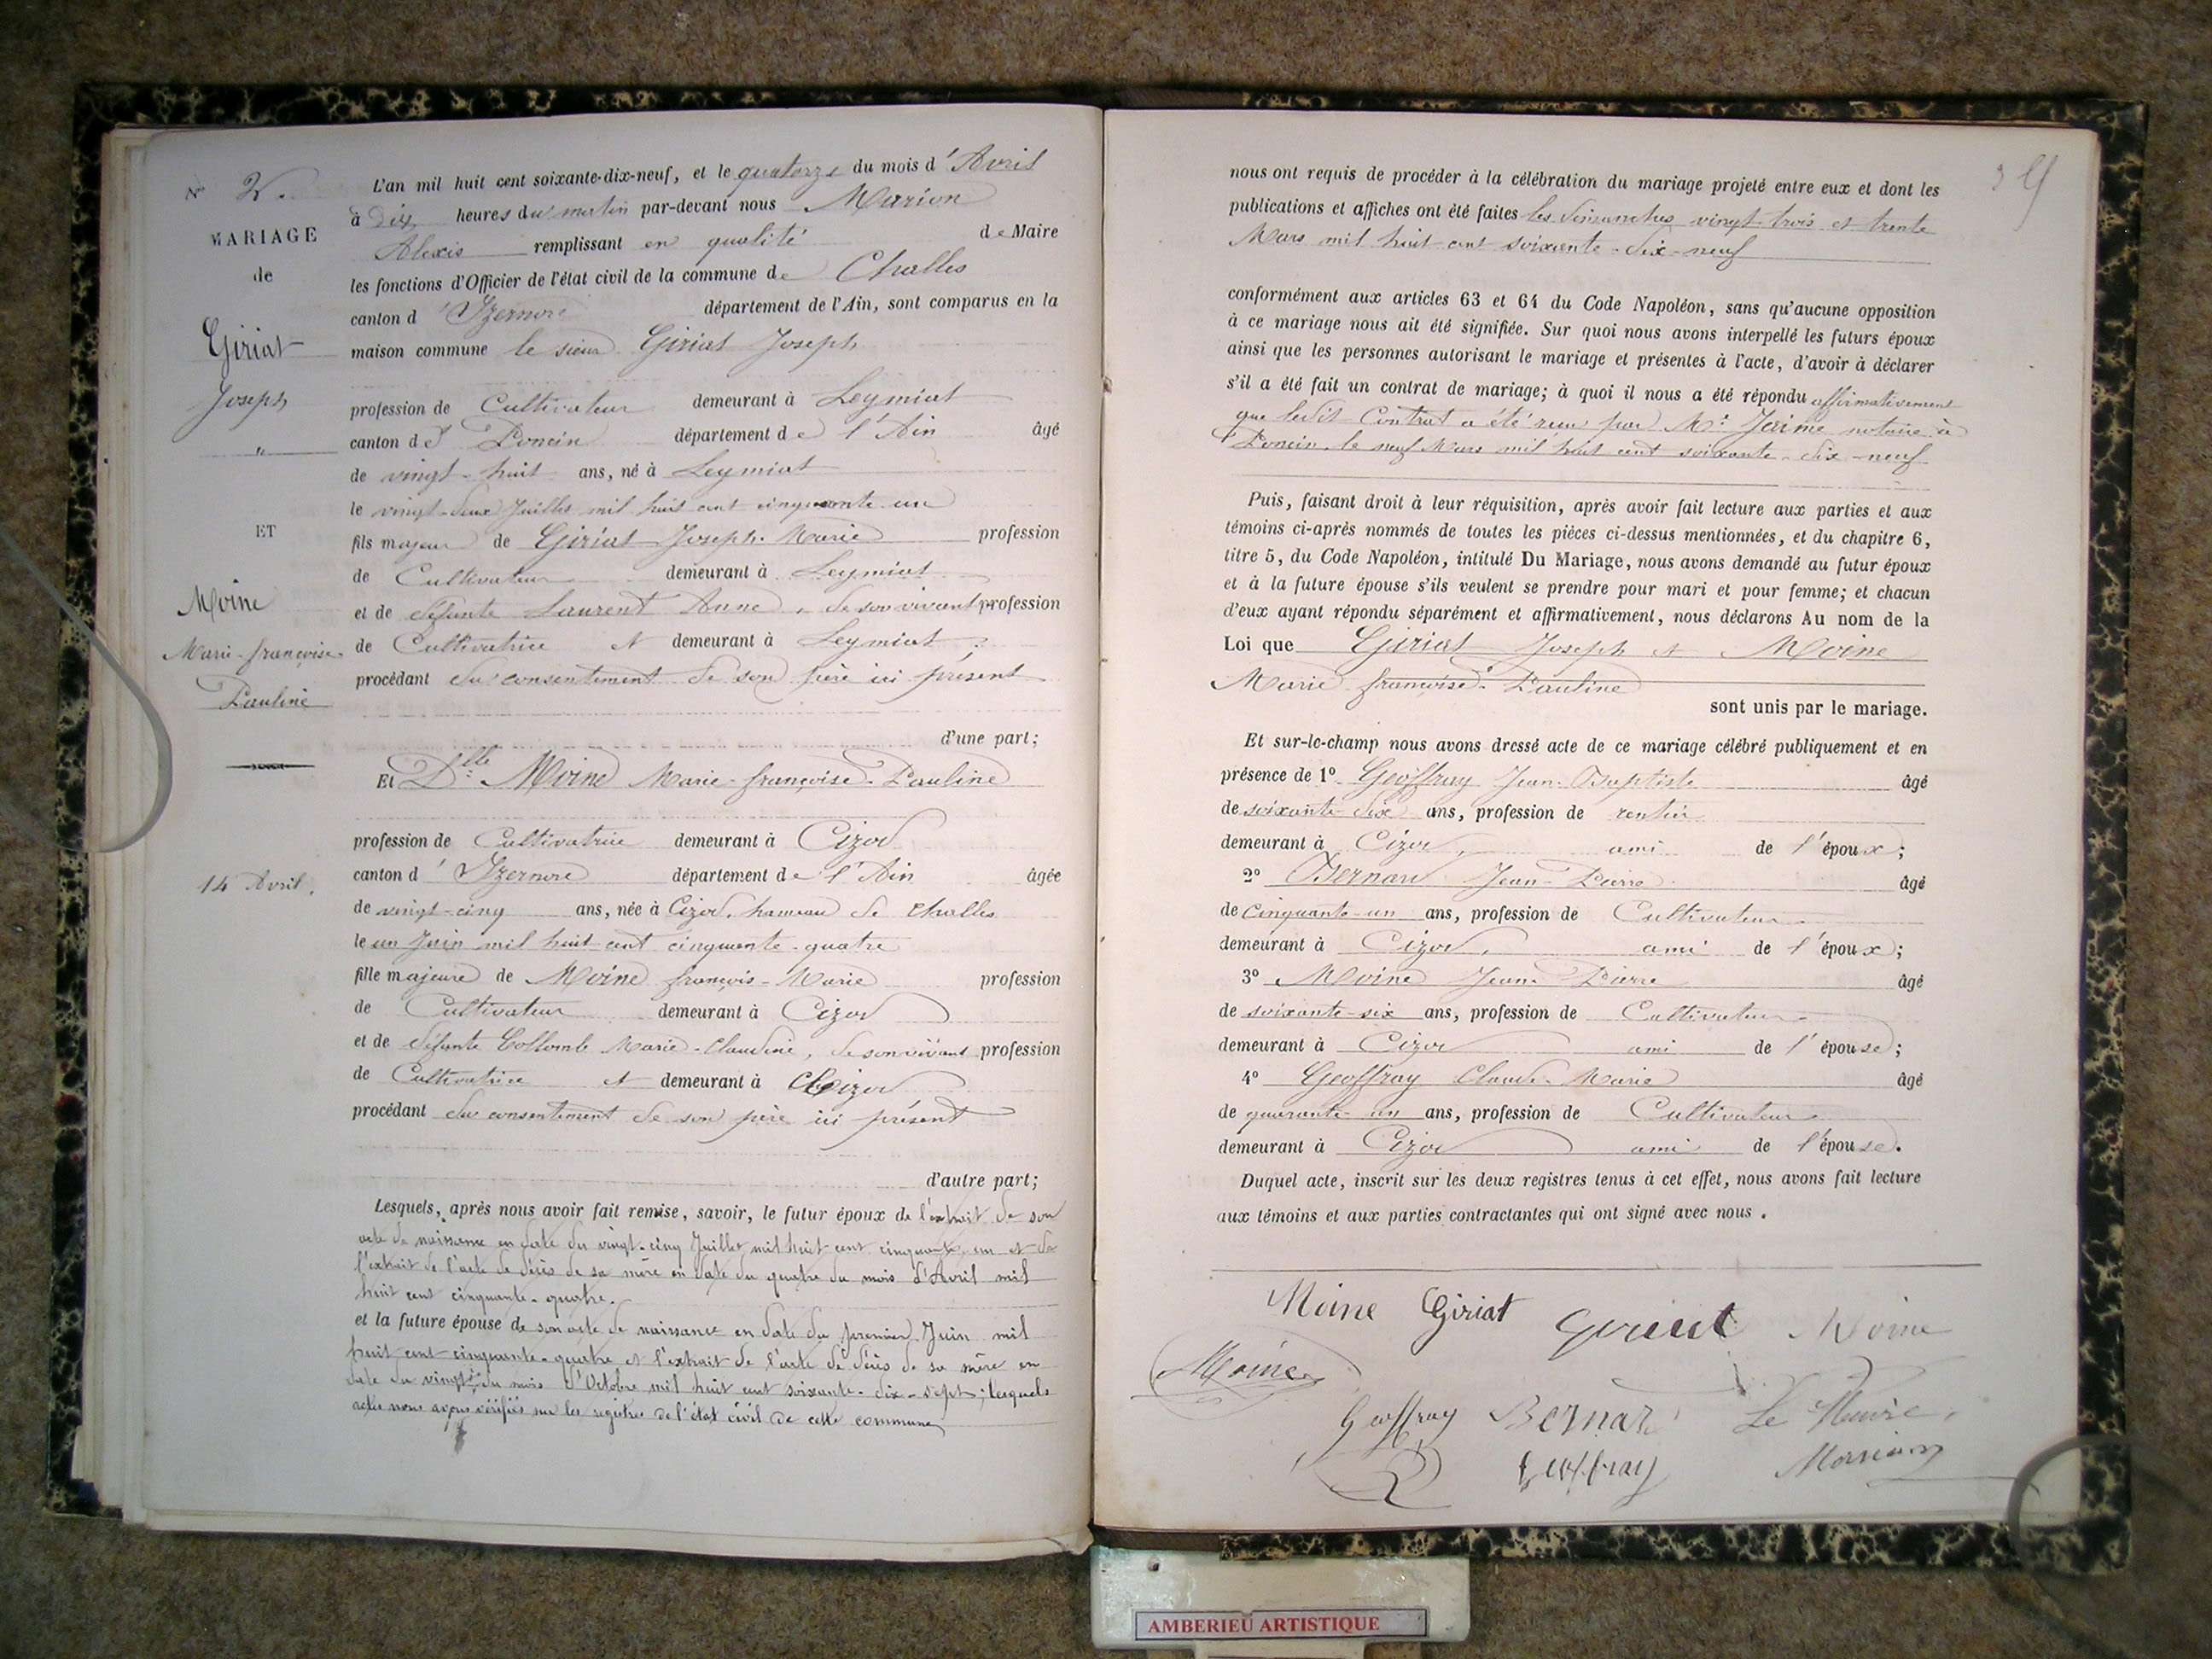 N° 2.
MARIAGE
de
Giriat
Joseph
"
ET
Moine
Marie-françoise-
Pauline
14 Avril.
L'an mil huit cent soixante-dix-neuf, et le quatorze du mois d'Avril
à dix heures du matin par-devant nous Marion
Alexis remplissant en qualité de Maire
les fonctions d'Officier de l'état civil de la commune de Challes
canton d'Izernore département de l'Ain, sont comparus en la
maison commune le sieur Giriat Joseph
profession de Cultivateur demeurant à Leymiat
canton de Poncin département de l'Ain âgé
de vingt-huit ans, né à Leymiat
le vingt-deux Juillet mil huit cent cinquante un
fils majeur de Giriat Joseph-Marie profession
de Cultivateur demeurant à Leymiat
et de défunte Laurent Anne, de son vivant profession
de Cultivatrice et demeurant à Leymiat
procédant du consentement de son père ici présent
d'une part;
Et Dlle Moine Marie-françoise-Pauline
profession de Cultivatrice demeurant à Cizod
canton d'Izernore département de l'Ain âgée
de vingt-cinq ans, née à Cizod, hameau de Challes
le un Juin mil huit cent cinquante-quatre
fille majeure de Moine françois-Marie profession
de Cultivateur demeurant à Cizod
et de défunte Collomb Marie-Claudine, de son vivant profession
de Cultivatrice et demeurant à Cizod
procédant du consentement de son père ici présent
d'autre part;
Lesquels, après nous avoir fait remise, savoir, le futur époux de l'extrait de son
acte de naissance en date du vingt-cinq Juillet mil huit cent cinquante un et de
l'extrait de l'acte de décès de sa mère en date du quatre du mois d'Avril mil
huit cent cinquante-quatre.
et la future épouse de son acte de naissance en date du premier Juin mil
huit cent cinquante-quatre et l'extrait de l'acte de décès de sa mère en
date du vingt du mois d'Octobre mil huit cent soixante-dix-sept; lesquels
actes nous avons vérifiés sur les registres de l'état civil de cette commune
nous ont requis de procéder à la célébration du mariage projeté entre eux et dont les
publications et affiches ont été faites les dimanches vingt-trois et trente
Mars mil huit cent soixante-dix-neuf
conformément aux articles 63 et 64 du Code Napoléon, sans qu'aucune opposition
à ce mariage nous ait été signifiée. Sur quoi nous avons interpellé les futurs époux
ainsi que les personnes autorisant le mariage et présentes à l'acte, d'avoir à déclarer
s'il a été fait un contrat de mariage; à quoi il nous a été répondu affirmativement
que ledit Contrat a été reçu par Me notaire à
Poncin, le neuf Mars mil huit cent soixante-dix-neuf
Puis, faisant droit à leur réquisition, après avoir fait lecture aux parties et aux
témoins ci-après nommés de toutes les pièces ci-dessus mentionnées, et du chapitre 6,
titre 5, du Code Napoléon, intitulé Du Mariage, nous avons demandé au futur époux
et à la future épouse s'ils veulent se prendre pour mari et pour femme; et chacun
d'eux ayant répondu séparément et affirmativement, nous déclarons Au nom de la
Loi que Giriat Joseph et Moine
Marie-françoise-Pauline
sont unis par le mariage.
Et sur-le-champ nous avons dressé acte de ce mariage célébré publiquement et en
présence de 1° Geoffray Jean-Baptiste âgé
de soixante-dix ans, profession de rentier
demeurant à Cizod, ami de l'époux;
2° Bernard Jean-Pierre âgé
de Cinquante-un ans, profession de Cultivateur
demeurant à Cizod, ami de l'époux;
3° Moine Jean-Pierre âgé
de soixante-six ans, profession de Cultivateur
demeurant à Cizod ami de l'épouse;
4° Geoffray Claude-Marie âgé
de quarante-un ans, profession de Cultivateur
demeurant à Cizod ami de l'épouse.
Duquel acte, inscrit sur les deux registres tenus à cet effet, nous avons fait lecture
aux témoins et aux parties contractantes qui ont signé avec nous.
Moine Giriat Giriat Moine
Moine
Geoffray Bernard Le Maire,
Geoffray Marion
AMBERIEU ARTISTIQUE